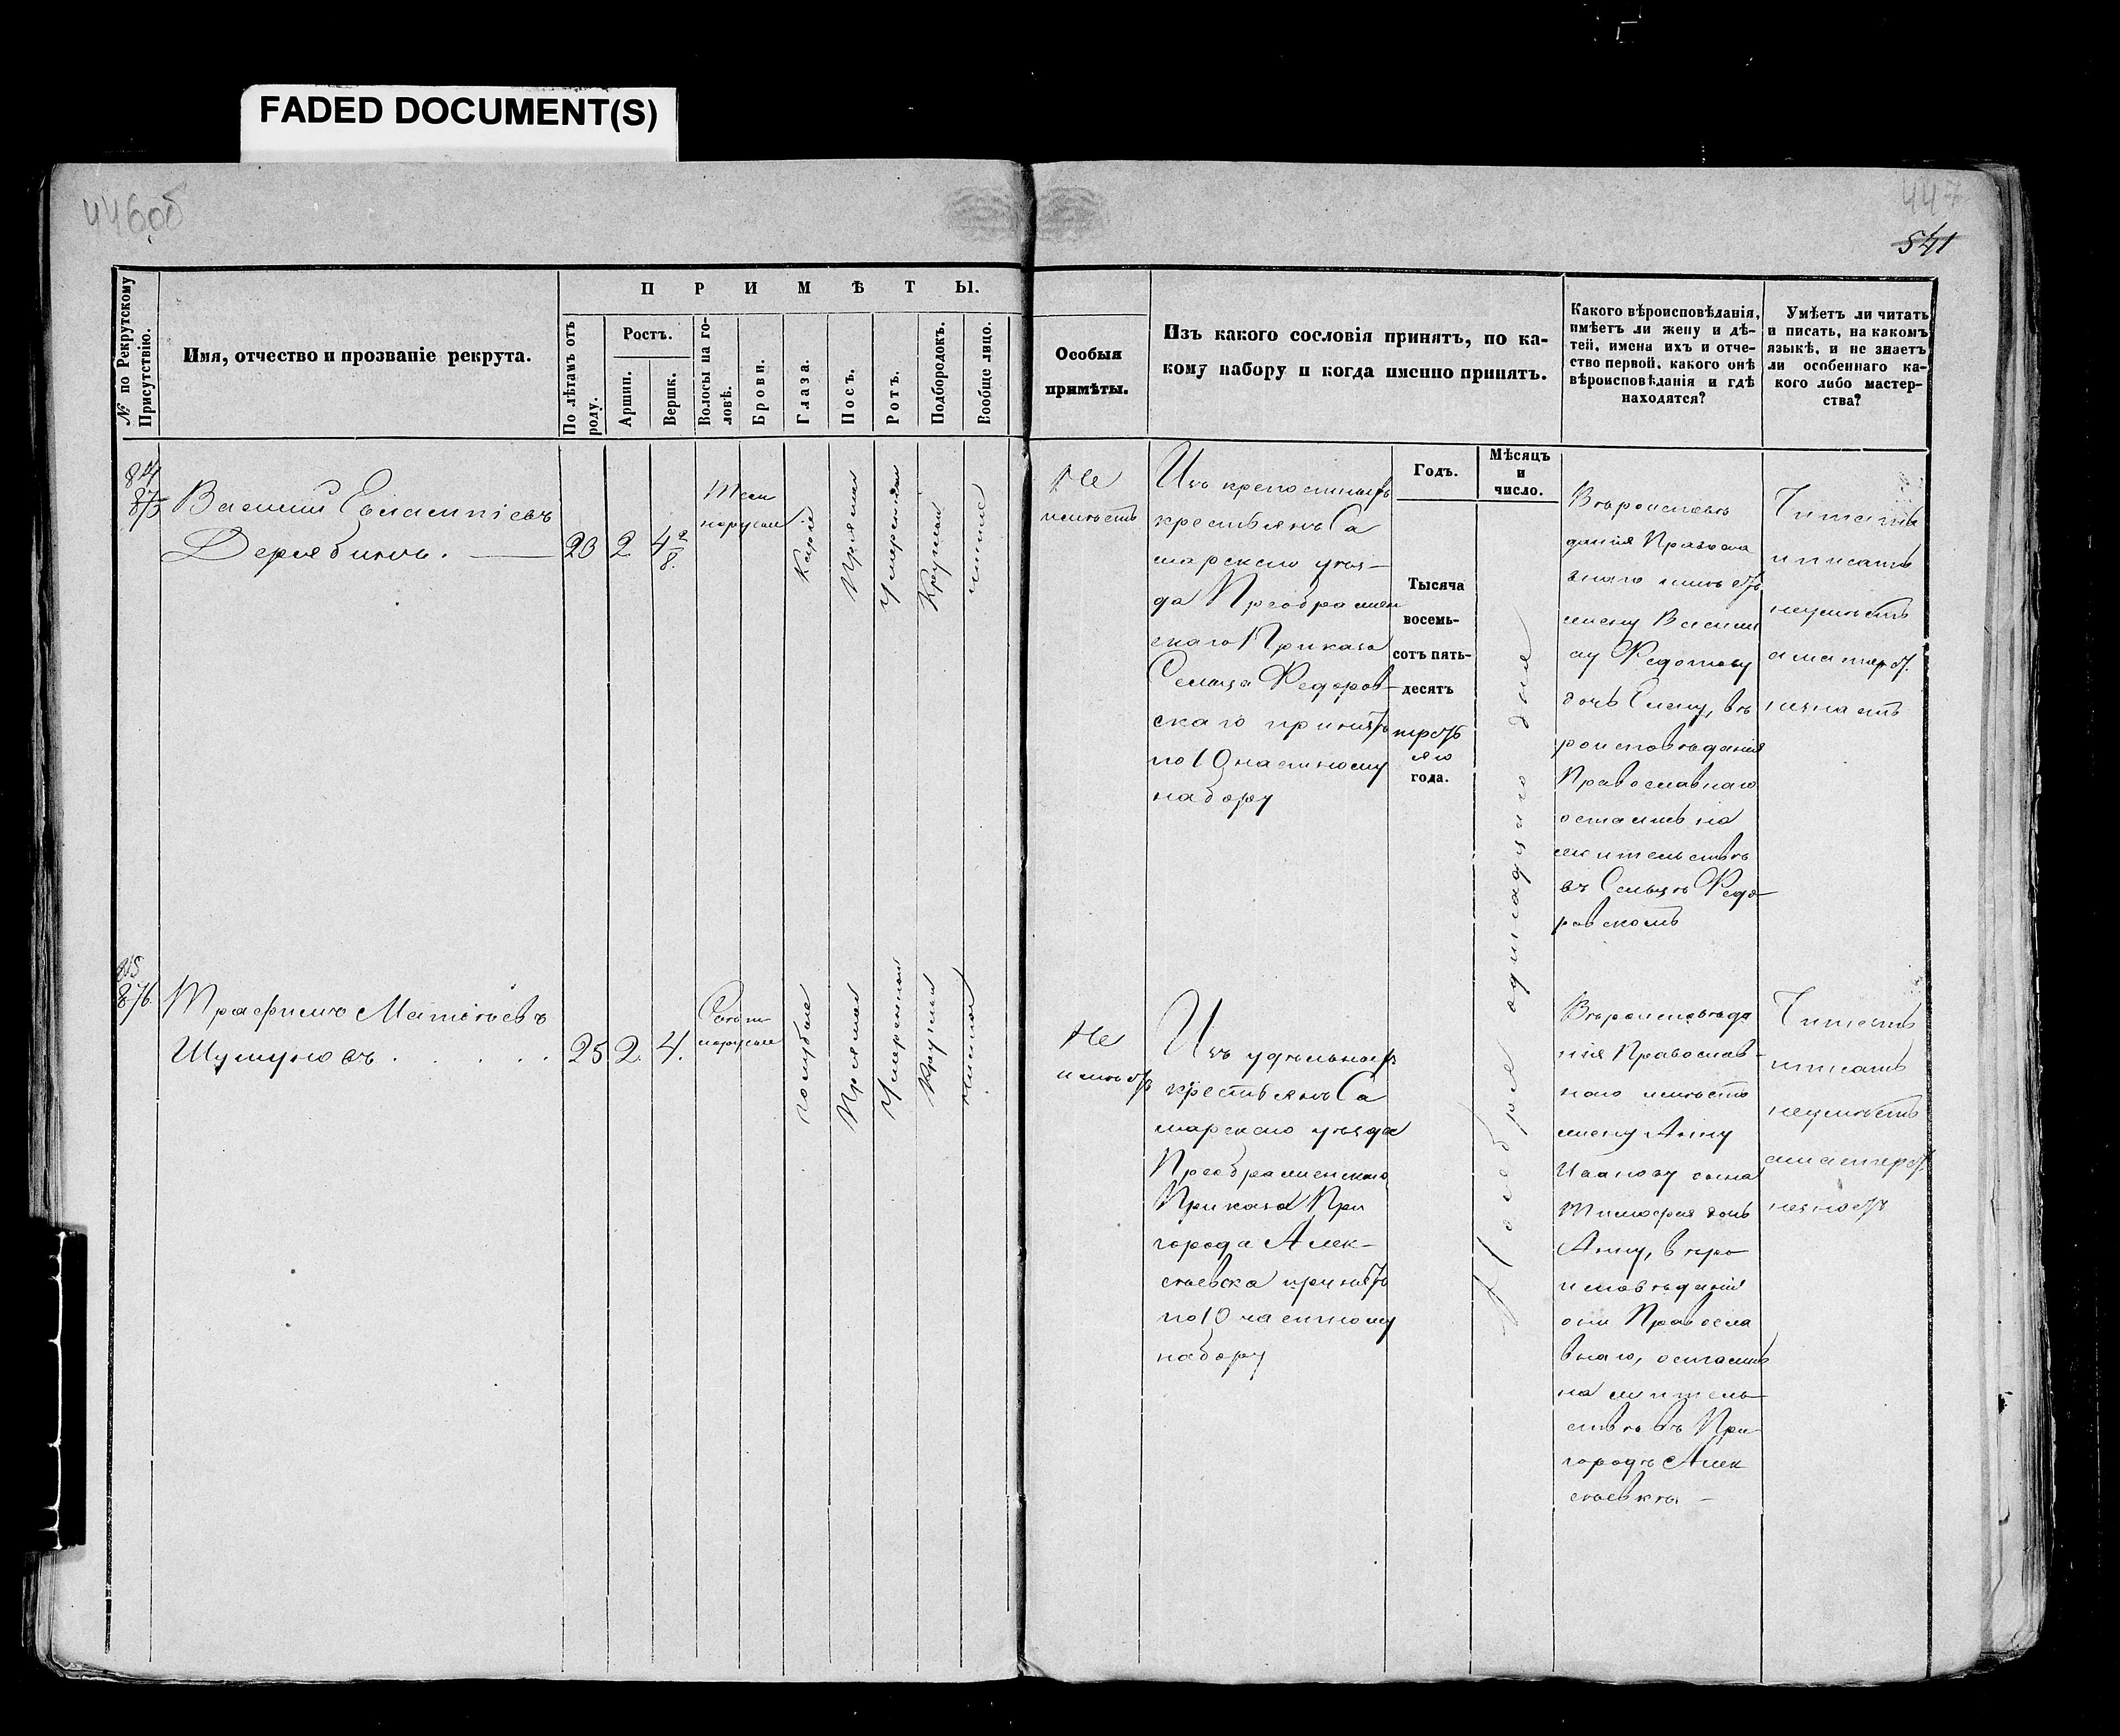 FADED DOCUMENT(S)
446об
447
541
№ по Рекрутскому
Присутствію.
Имя, отчество и прозваніе рекрута.
ПРИМѢТЫ.
По лѣтамъ отъ
роду.
Ростъ.
Аршин.
Вершк.
Волосы на го-
ловѣ.
Брови.
Глаза.
Носъ.
Ротъ.
Подбородокъ.
Вообще лицо.
Особыя
примѣты.
Изъ какого сословія принятъ, по ка-
кому набору и когда именно принятъ.
Какого вѣроисповѣданія,
имѣетъ ли жену и дѣ-
тей, имена ихъ и отче-
ство первой, какого онѣ
вѣроисповѣданія и гдѣ
находятся?
Умѣетъ ли читать
и писать, на какомъ
языкѣ, и не знаетъ
ли особеннаго ка-
кого либо мастер-
ства?
Годъ.
Мѣсяцъ
и
число.
875
Василий
Дерябинъ.
20
2
4 2/8.
Темн
норусые
Карие
Прямая
Умеренный
Круглый
чистое
Не
имѣетъ
Изъ крепостныхъ
крестьянъ Са
марскаго уѣз-
да Преображен
скаго Приказа
Сельца Федоров-
скаго принятъ
по 10 частному
набору
Тысяча
восемь-
сотъ пять-
десятъ
третья
яго
года.
Ноября одинадцатаго дня
Вѣроисповѣ
данія Правосла
внаго имѣетъ
жену Васили
су Федотову
дочь Елену, вѣ
роисповѣданія
Православнаго
остались на
жительствѣ
въ Сельцѣ Федо-
ровскомъ
Читать
и писать
неумѣетъ
а мастерст.
незнаетъ
876.
Трафимъ Матвѣевъ
Шушуновъ . . . . .
25
2.
4.
Свѣт
лорусые
голубые
Прямая
Умеренный
Круглый
чистое
Не
имѣетъ
Изъ удѣльныхъ
крестьянъ Са
марскаго уѣзда
Преображенскаго
Приказа При
города Алек-
сѣевска принятъ
по 10 частному
набору
Вѣроисповѣда
нія Православ-
наго имѣетъ
жену Анну
Иванову сына
Тимофея дочь
Анну, вѣро
исповѣданія
они Правосла
внаго, остались
на житель-
ствѣ въ При
городѣ Алек
сѣевкѣ –
Читать
и писать
неумѣетъ
амастерст.
незнаетъ